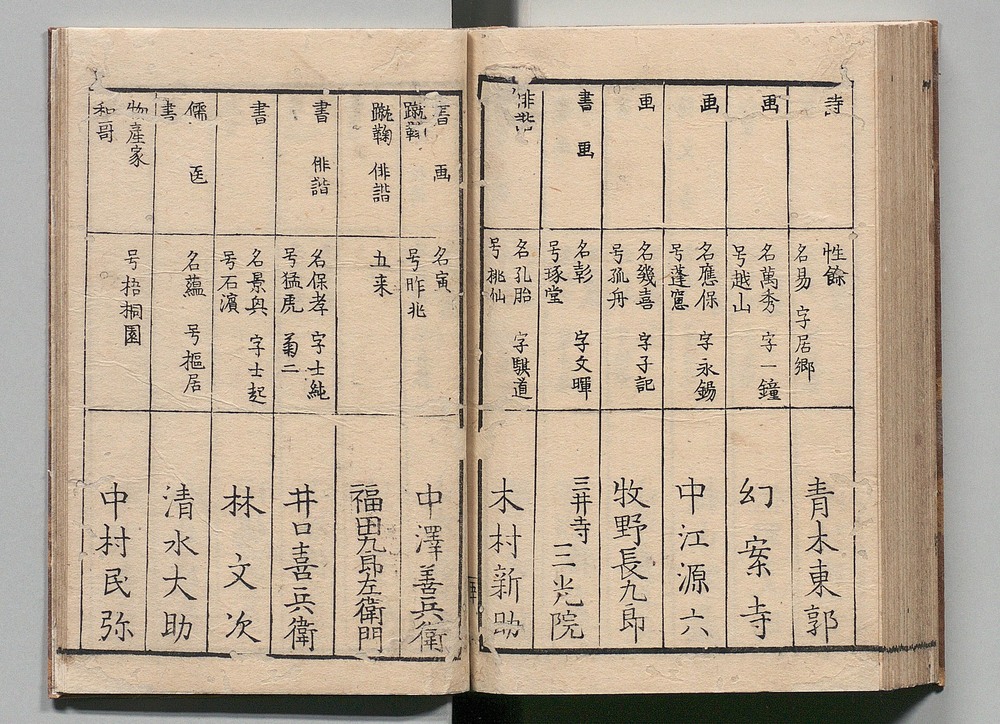 詩
性餘
名易 字居郷
青木東郭
画
名萬秀 字一鐘
号越山
幻案寺
画
名應保 字永錫
号蓬窻
中江源六
画
名幾喜 字子記
号孤舟
牧野長九郎
書 画
名彰 字文暉
号琢堂
三井寺
三光院
俳諧
名孔胎 字騏道
号桃仙
木村新助
書 画
蹴鞠
名寅
号昨非
中澤善兵衛
蹴鞠 俳諧
五来
福田九郎左衛門
書 俳諧
名保孝 字士純
号猛虎 菊二
井口喜兵衛
書
名景與 字士起
号石濱
林文次
儒 医
書
名蘊 号摳居
清水大助
物産家
和哥
号梧桐園
中村民弥